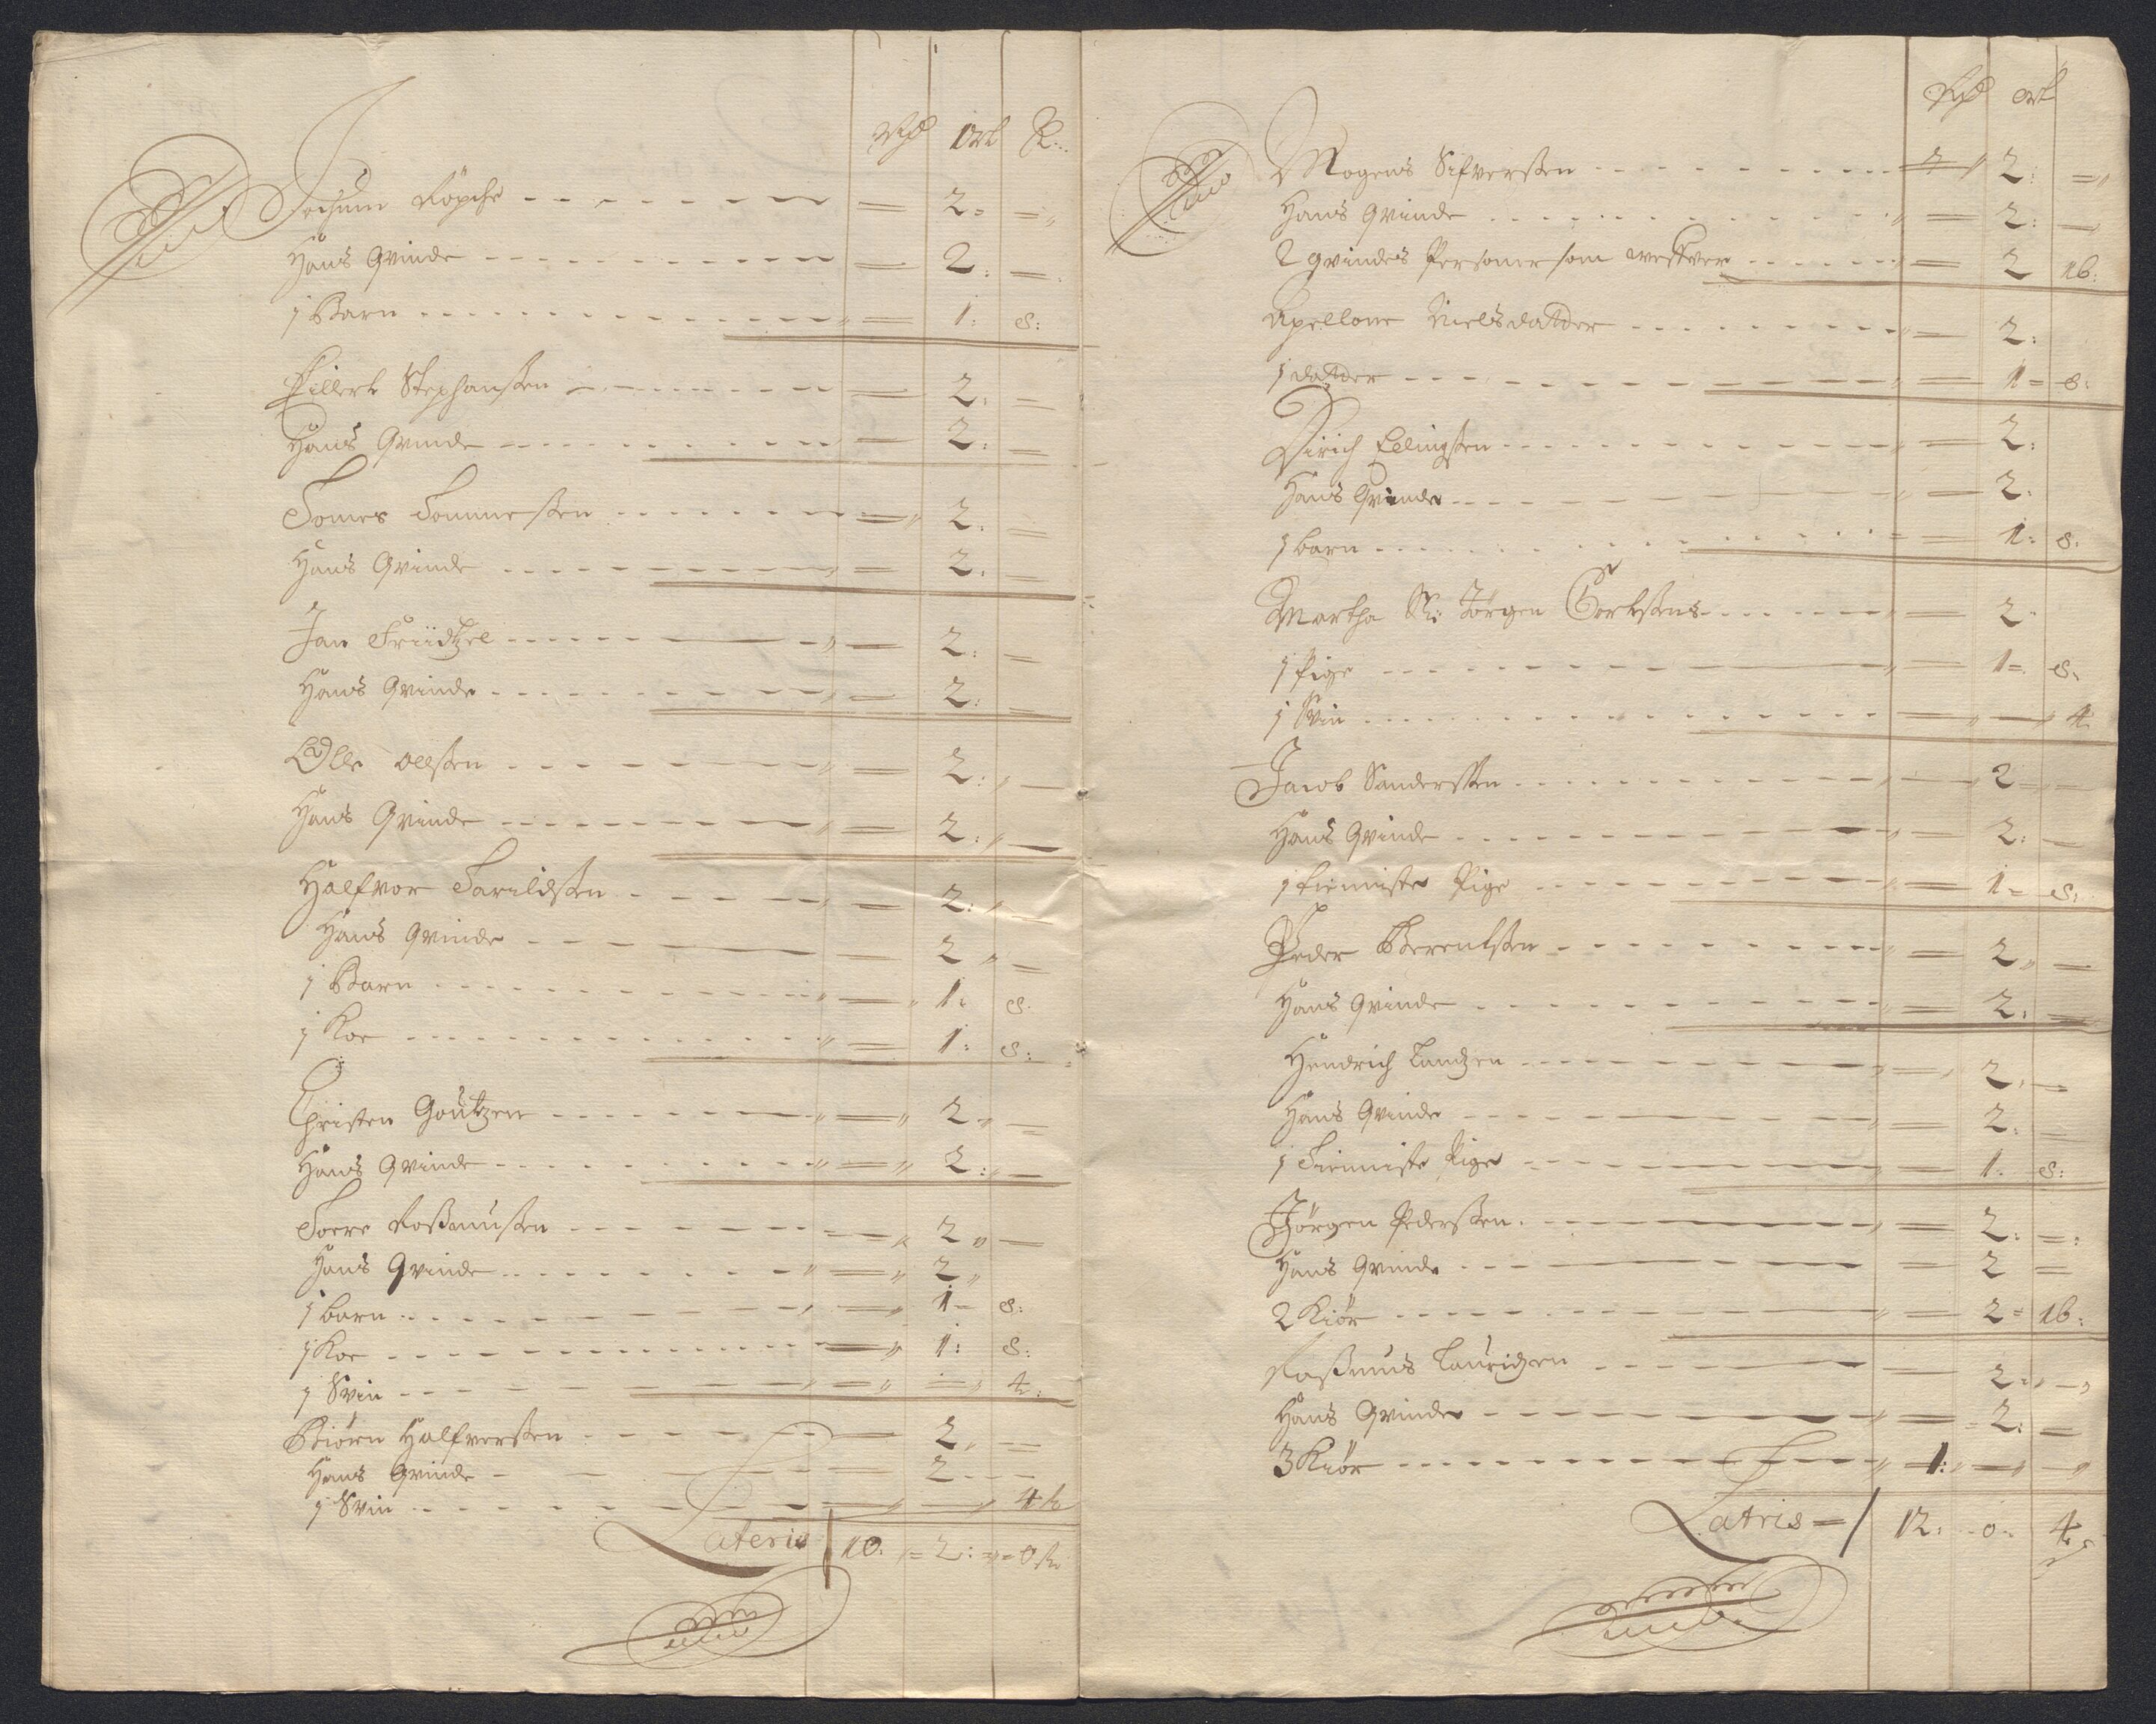 Rd Ort S:
Jochum Köpche - - - = 2 = =
Hans Qvinde - - - = 2: =
1 Barn - - - = 1: 8:
Eillert Stephansen - - - = 2: =
Hans Qvinde - - - = 2: =
Tomes Tommesen - - - = 2: =
Hans Qvinde - - - = 2: =
Jan - - - = 2: =
Hans Qvinde - - - = 2: =
Olle Ollsen - - - = 2: =
Hans Qvinde - - - = 2: =
Halfvor Tarildsen - - - = 2: =
Hans Qvinde - - - = 2 =
1 Barn - - - = 1: 8:
1 Koe - - - = 1: 8:
Christen Goutzen - - - = 2 =
Hans Qvinde - - - = 2: =
Torre Rasmusen - - - = 2 =
Hans Qvinde - - - = 2
1 barn - - - = 1 = 8:
1 Koe - - - = 1: 8:
1 Svin - - - = = 4:
Biørn Halfversen - - - = 2 =
Hans Qvinde - - - = 2
1 Svin - - - = = 4 s
Lateris 10: = 2: = 0 s
Rd ort
Mogens Sifversen - - - = 2: =
Hans Qvinde - - - = 2: =
2 qvindes Personer som - - - = 2 16:
Apellone Nielsdatter - - - = 2:
1 datter - - - = 1 = 8:
Dirich Ellingsen - - - = 2:
Hans Qvinde - - - = 2:
1 barn - - - = 1: 8:
Martha Sl: Jørgen - - - = 2
1 Pige - - - = 1 = 8:
1 Svin - - - = = 4
Jacob Sandersen - - - = 2 =
Hans Qvinde - - - = 2: =
1 tienniste Pige - - - = 1 = 8:
Peder Berentsen - - - = 2 =
Hans Qvinde - - - = 2: =
Hendrich Lautzen - - - = 2: =
Hans Qvinde - - - = 2: =
1 Tienniste Pige - - - = 1: 8:
Jørgen Pedersen - - - = 2: =
Hans Qvinde - - - = 2 =
2 Kiør - - - = 2 = 16:
Rasmus Lauridzen - - - = 2: =
Hans Qvinde - - - = 2: =
3 Kiør - - - 1: = =
Latris = 12: 0: 4 s